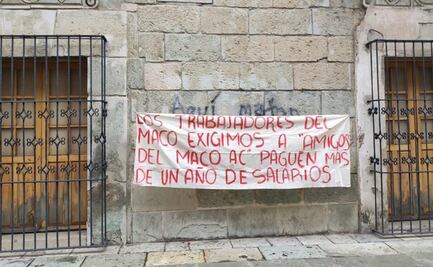 Aquí matan
LOS TRABAJADORES DEL
MACO EXIGIMOS A "AMIGOS
DEL MACO AC" PAGUEN MAS
DE UN AÑO DE SALARIOS